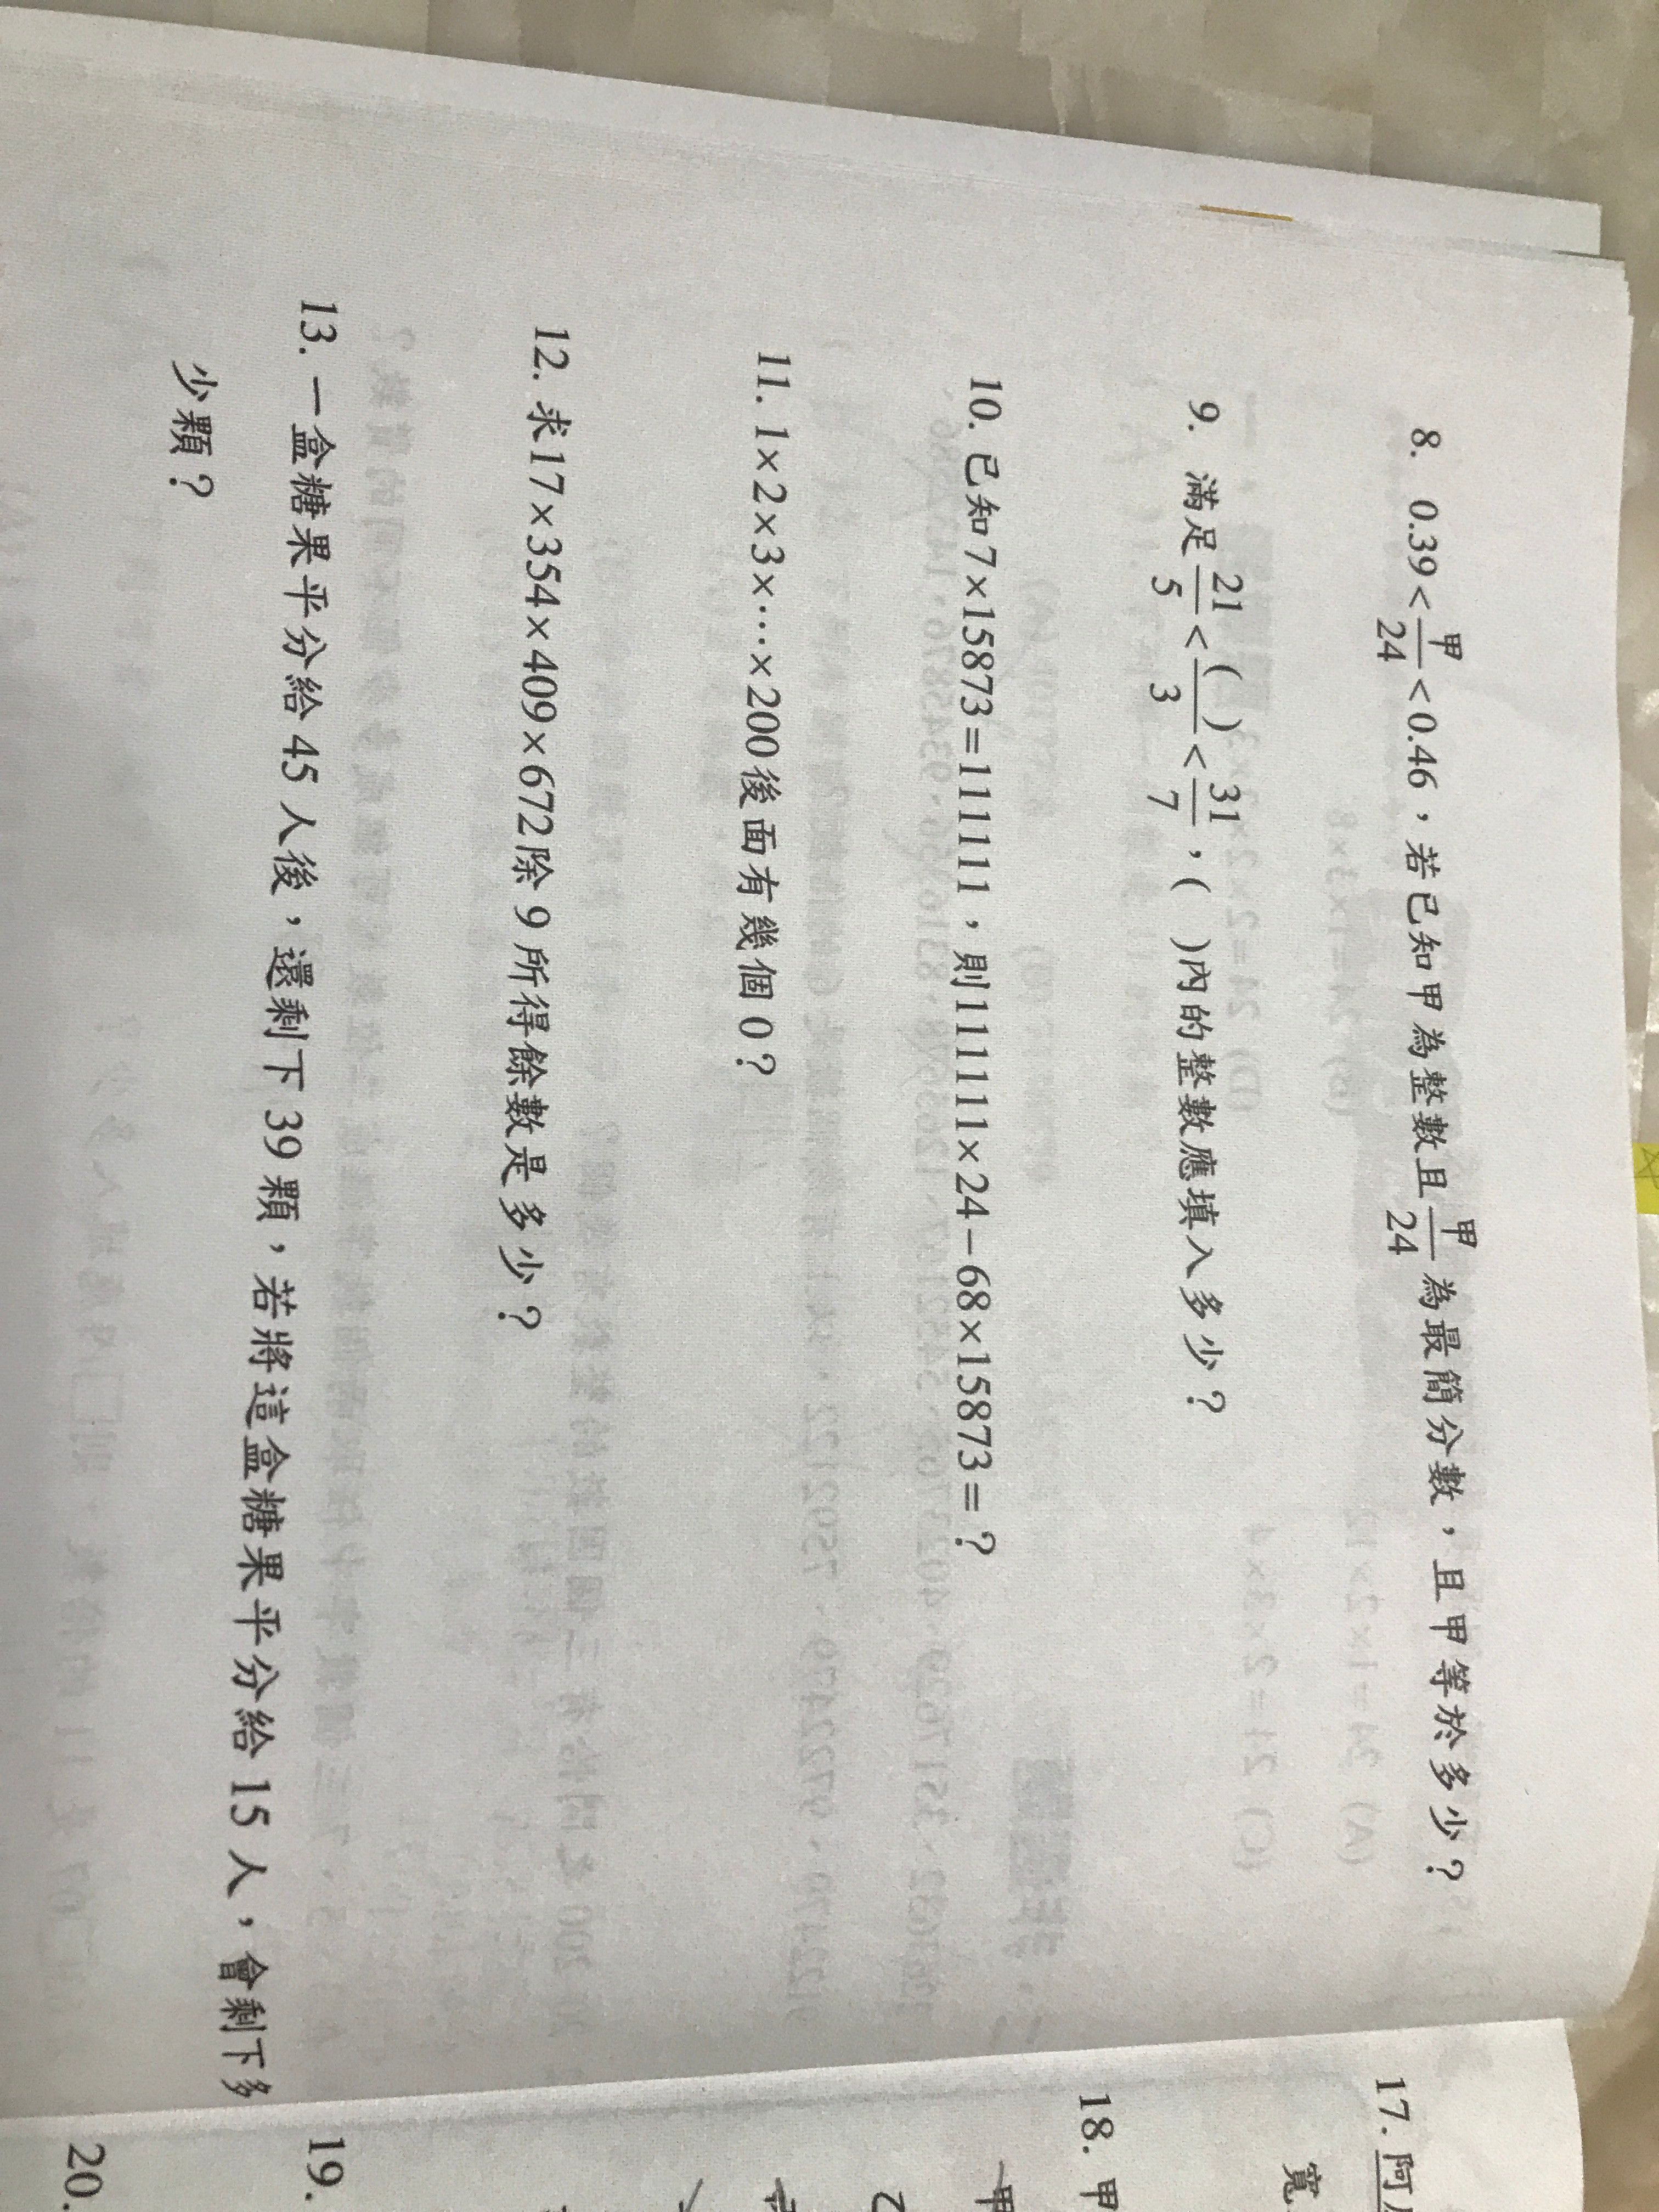 8. 0.39<甲/24<0.46，若已知甲為整數且甲/24為最簡分數，且甲等於多少？
9. 滿足21/5<( )/3<31/7，( )內的整數應填入多少？
10. 已知7×15873=111111，則111111×24－68×15873=？
11. 1×2×3×…×200後面有幾個0？
12. 求17×354×409×672除9所得餘數是多少？
13. 一盒糖果平分給45人後，還剩下39顆，若將這盒糖果平分給15人，會剩下多
少顆？
17. 阿
寬
18. 甲
甲
乙
19.
20.